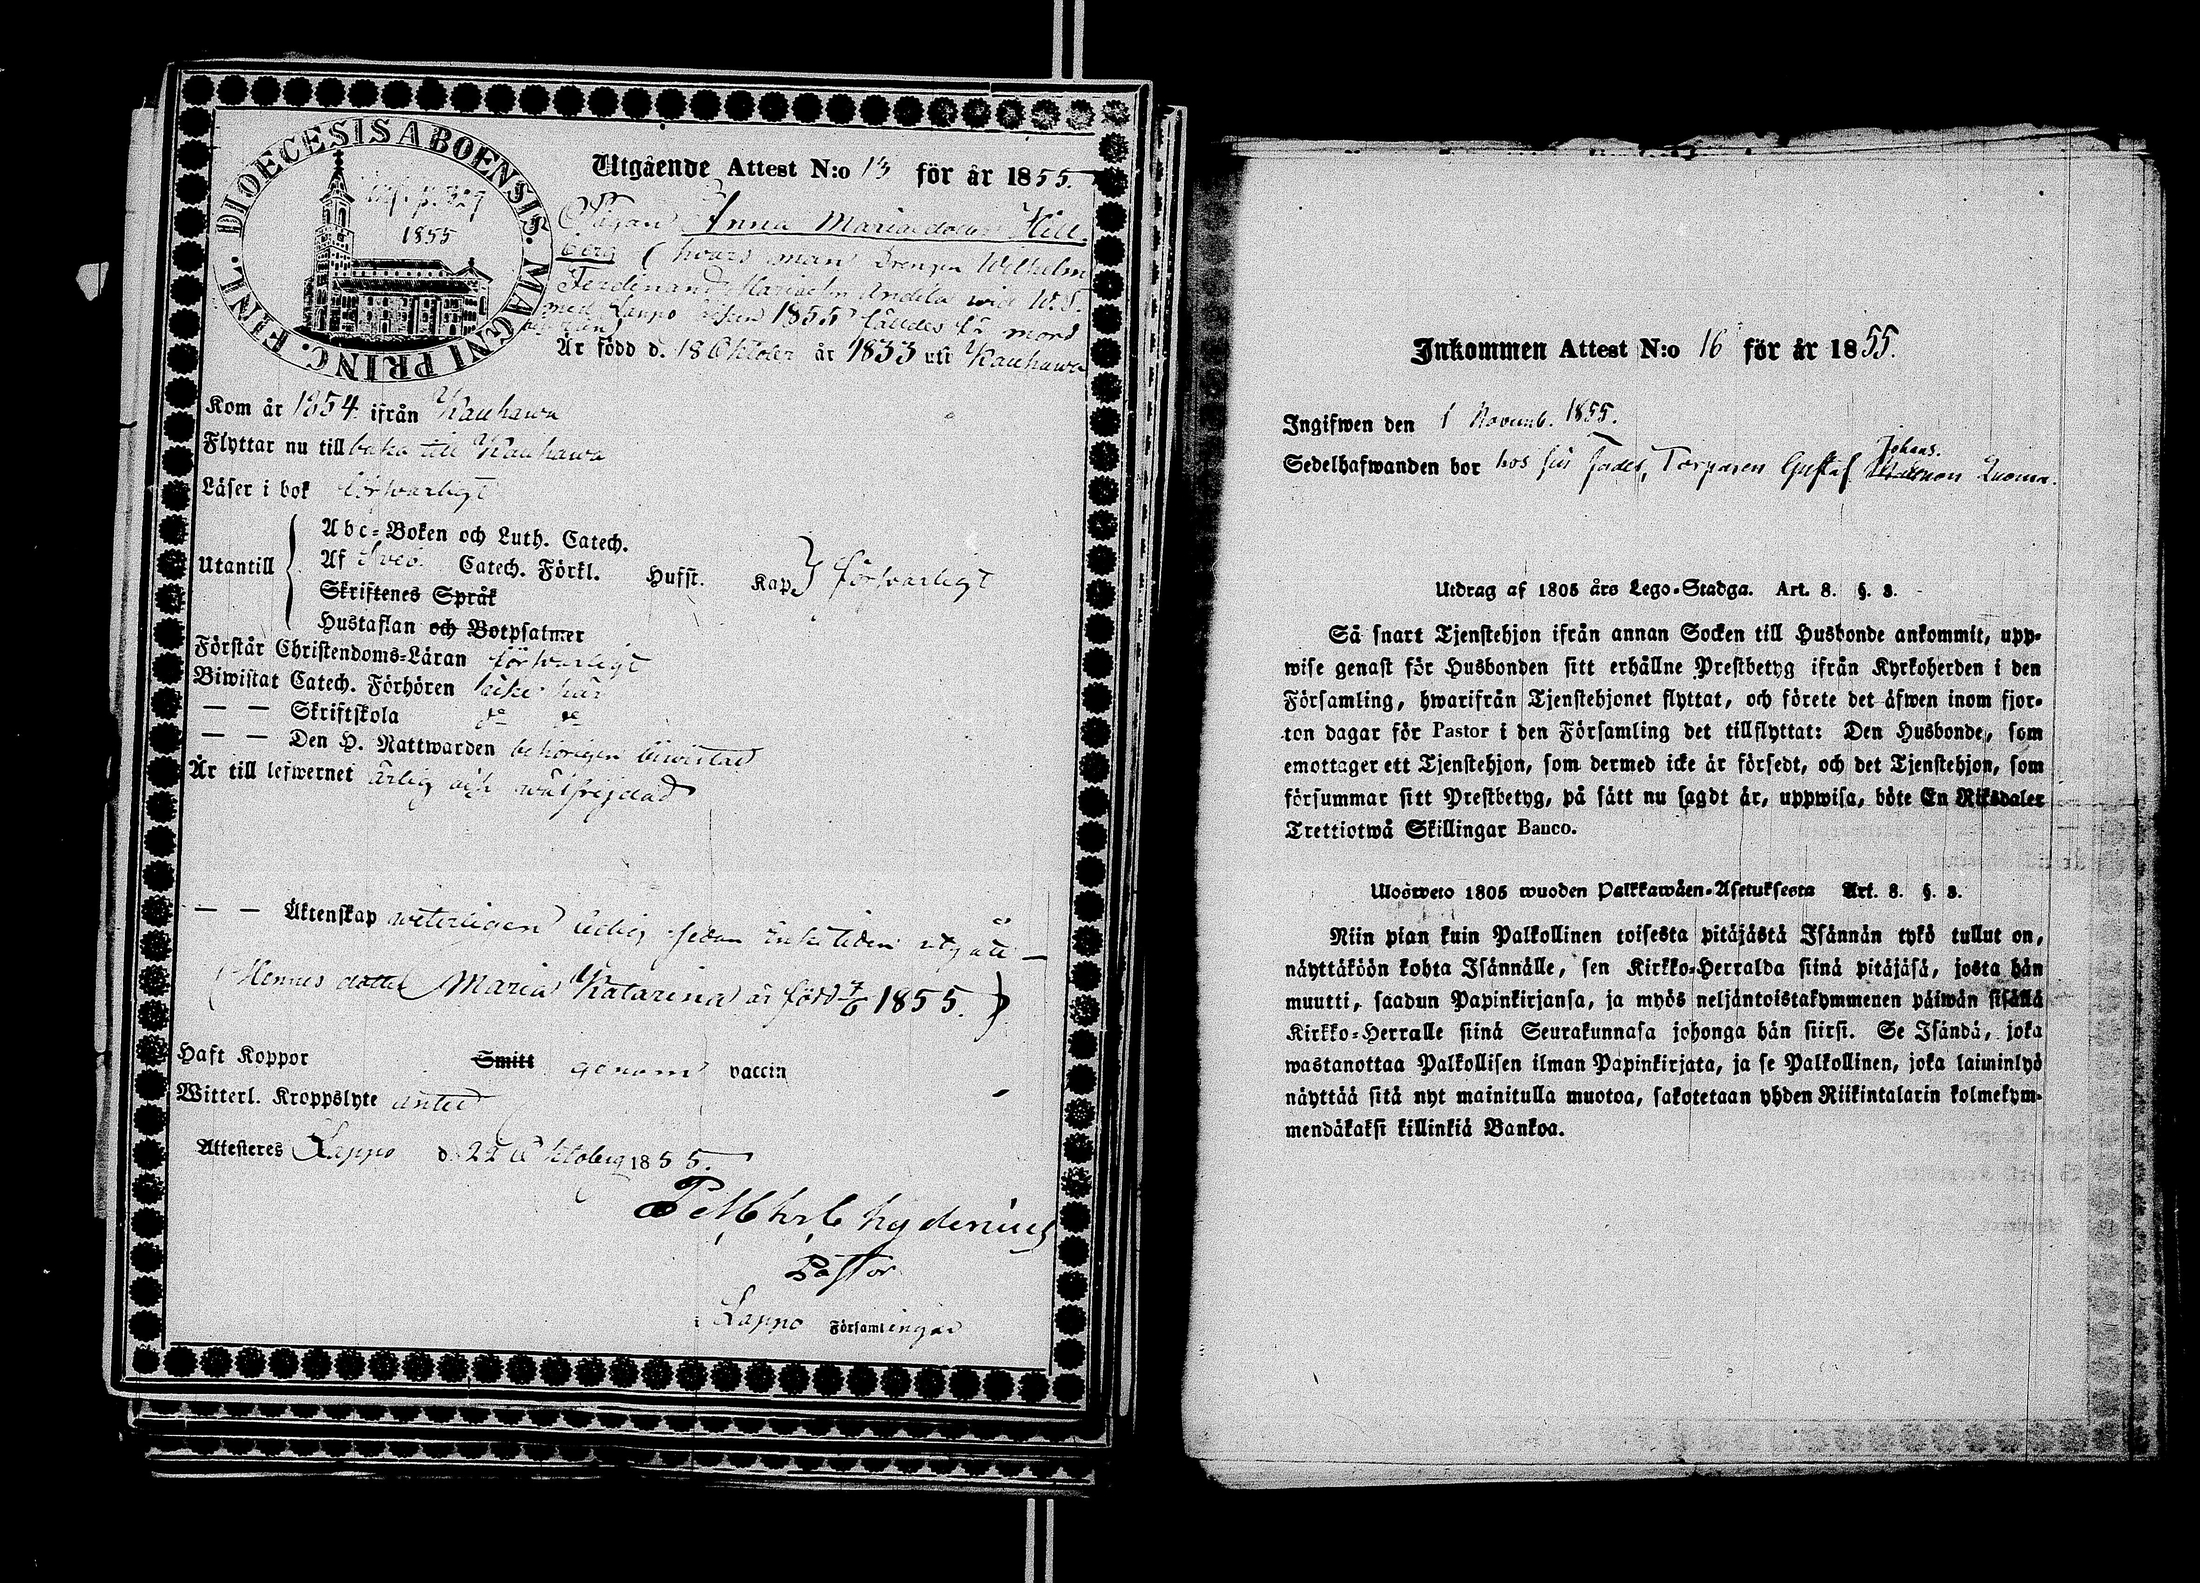 DIOECESIS ABOENSIS. MAGNI PRINC. FINL.
p. 327
1855
Utgående Attest N:o 13 för år 1855.
Pigan Anna Mariadotter Hill-
berg (hvars man Drengen Wilhelm
Ferdinand Andila wid W. T.
med Lappo 1855 fälldes för mord
Är född d. 18 Oktober år 1833 uti Kauhawa
Kom år 1854 ifrån Kauhawa
Flyttar nu tillbaka till Kauhawa
Läser i bok försvarligt
Utantill
Abc-Boken och Luth. Catech.
Af Sveb. Catech. Förkl. Hufst. Kap. försvarligt
Skriftenes Språk
Hustaflan och Botpsalmer
Förstår Christendoms-Läran försvarligt
Biwistat Catech. Förhören icke här
— — Skriftskola do do
— — Den H. Nattwarden behörigen biwistat
Är till lefwernet ärlig och wälfrejdad
— — Äktenskap weterligen ledig sedan enketiden utgått —
(Hennes dotter Maria Katarina är född 7/6 1855.)
Haft Koppor Smitt genom vaccin
Witterl. Kroppslyte intet
Attesteres Lappo d. 22 Oktober 1855.
hydenius
Pastor
Lappo Församlingar
Inkommen Attest N:o 16 för år 1855.
Ingifwen den 1 Novemb. 1855.
Johans.
Sedelhafwanden bor hos sin fader, Torparen Gustaf Luoma.
Utdrag af 1805 års Lego-Stadga. Art. 8. §. 3.
Så snart Tjenstehjon ifrån annan Socken till Husbonde ankommit, upp-
wise genast för Husbonden sitt erhållne Prestbetyg ifrån Kyrkoherden i den
Församling, hwarifrån Tjenstehjonet flyttat, och förete det äfwen inom fjor-
ton dagar för Pastor i den Församling det tillflyttat: Den Husbonde, som
emottager ett Tjenstehjon, som dermed icke är försedt, och det Tjenstehjon, som
försummar sitt Prestbetyg, på sätt nu sagdt är, uppwisa, böte En Riksdaler
Trettiotwå Skillingar Banco.
Ulosweto 1805 wuoden Palkkawäen-Asetuksesta Art. 8. §. 3.
Niin pian kuin Palkollinen toisesta pitäjästä Isännän tykö tullut on,
näyttäköön kohta Isännälle, sen Kirkko-Herralda siinä pitäjäsä, josta hän
muutti, saadun Papinkirjansa, ja myös neljäntoistakymmenen päiwän sisällä
Kirkko-Herralle siinä Seurakunnasa johonga hän siirsi. Se Isändä, joka
wastanottaa Palkollisen ilman Papinkirjata, ja se Palkollinen, joka laiminlyö
näyttää sitä nyt mainitulla muotoa, sakotetaan yhden Riikintalarin kolmekym-
mendäkaksi killinkiä Bankoa.